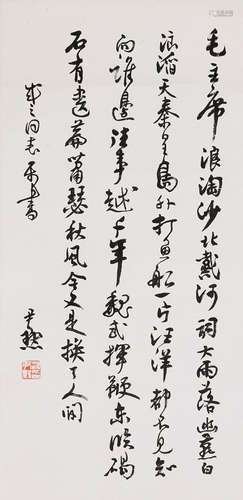 毛主席浪淘沙北戴河词大雨落幽燕白
浪滔天秦皇岛外打鱼船一片汪洋都不见知
向谁边往事越千年魏武挥鞭东临碣
石有遗篇萧瑟秋风今又是换了人间
成之同志属书
尹默